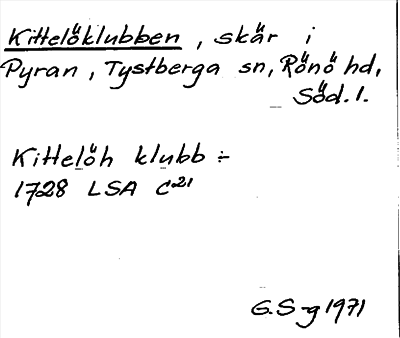 Kittelöklubben, skär i
Pyran, Tystberga sn, Rönö hd,
Söd. l.
Kittelöh klubb ÷
1728 LSA C21
G.S-g 1971